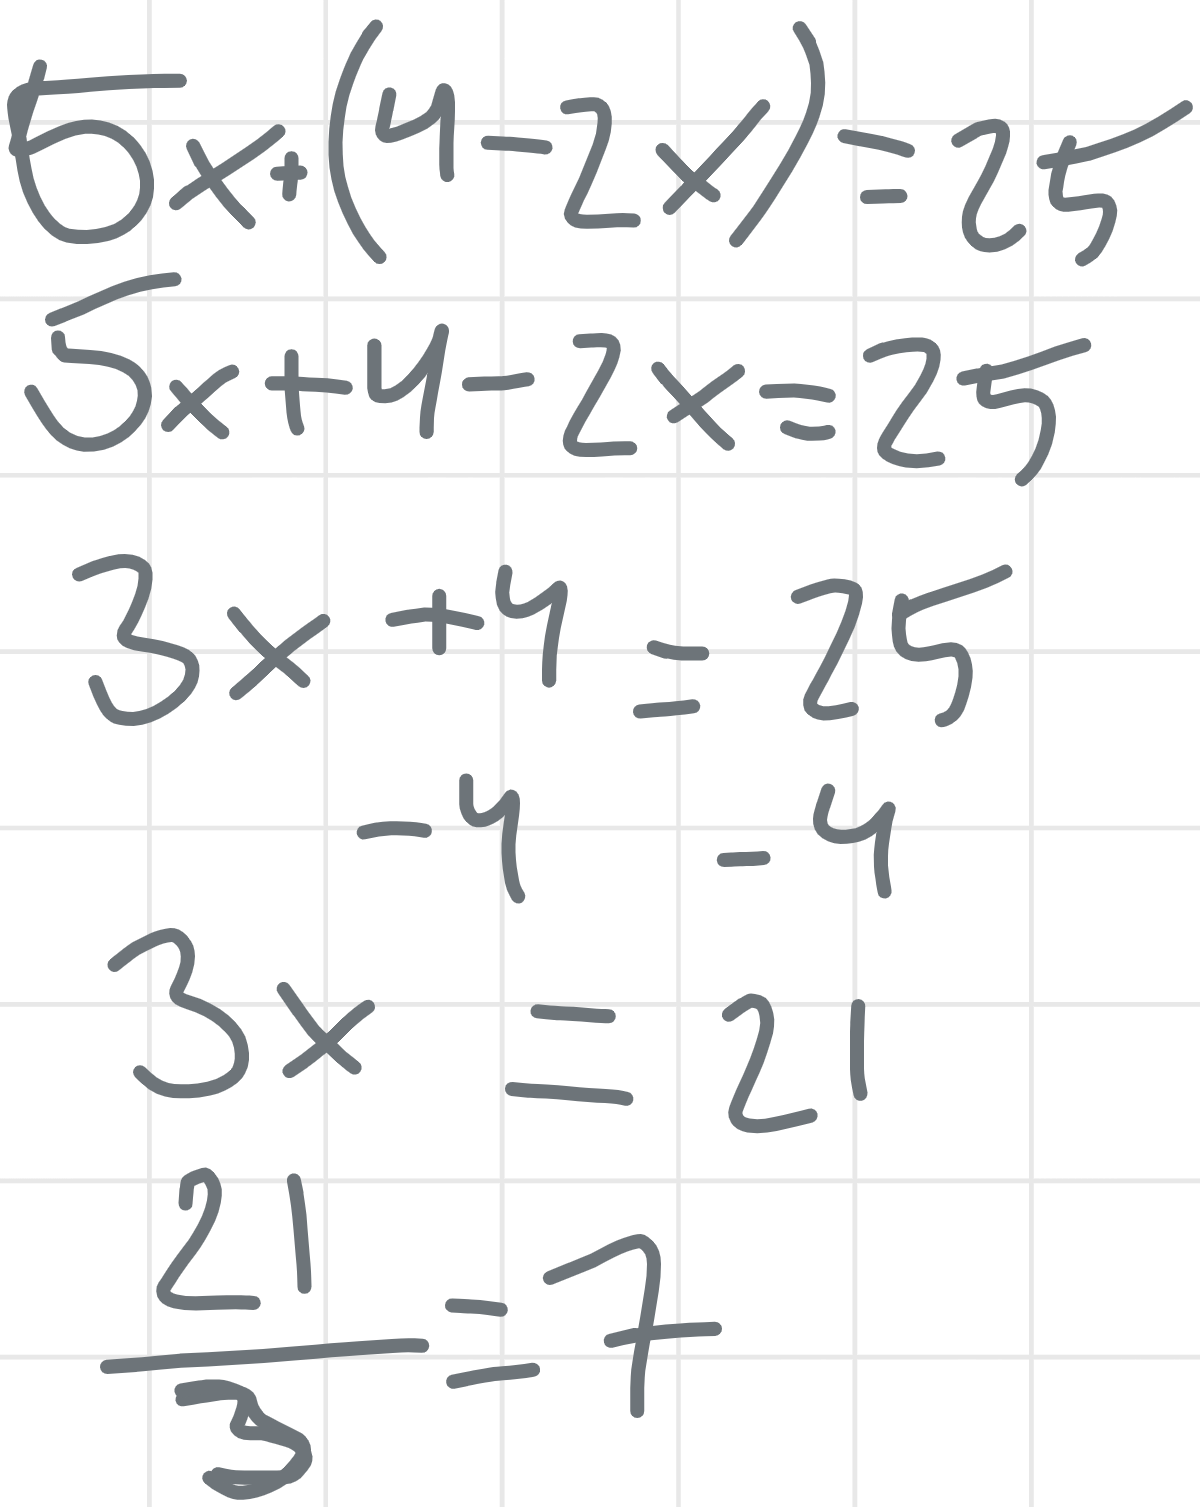 5x+(4-2x)=25
5x+4-2x=25
3x+4=25
-4 -4
3x=21
21/3=7